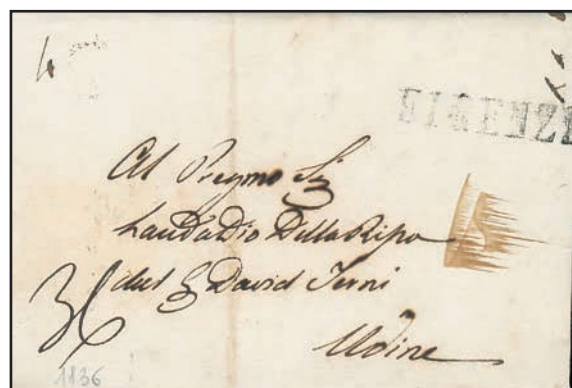 4
FIRENZE
Al Pregmo Sig
Laudadio Della Ripa
del Sg David Terni
36
Udine
1836